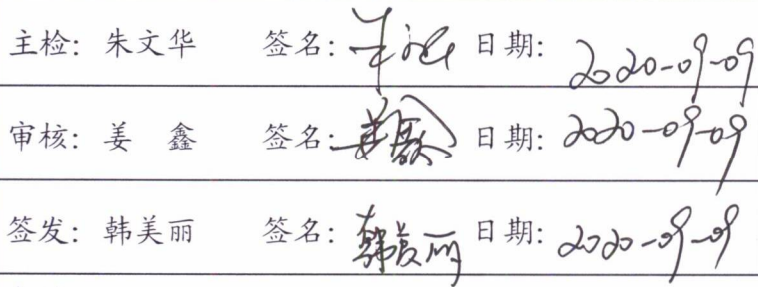 主检: 朱文华 签名: 日期: 2020-09-09
审核: 姜 鑫 签名: 姜鑫 日期: 2020-09-09
签发: 韩美丽 签名: 韩美丽 日期: 2020-09-09